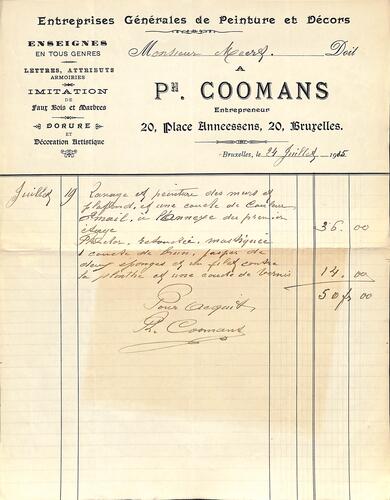 Entreprises Générales de Peinture et Décors
ENSEIGNES
EN TOUS GENRES
LETTRES, ATTRIBUTS
ARMOIRIES
IMITATION
DE
Faux Bois et Marbres
DORURE
ET
Décoration Artistique
Monsieur Meert Doit
A
PH. COOMANS
Entrepreneur
20, Place Anneessens, 20, Bruxelles.
Bruxelles, le 24 Juillet 1905
Juillet 19 Lavage et peinture des murs et
plafond, et une couche de couleur
émail, à l'annexe du premier
étage 36.00
retouchée, mastiquée
1 couche de brun,
deux éponges et un filet contre
la plinthe et une couche de vernis 14.00
50 fr 00
Pour acquit
Ph. Coomans